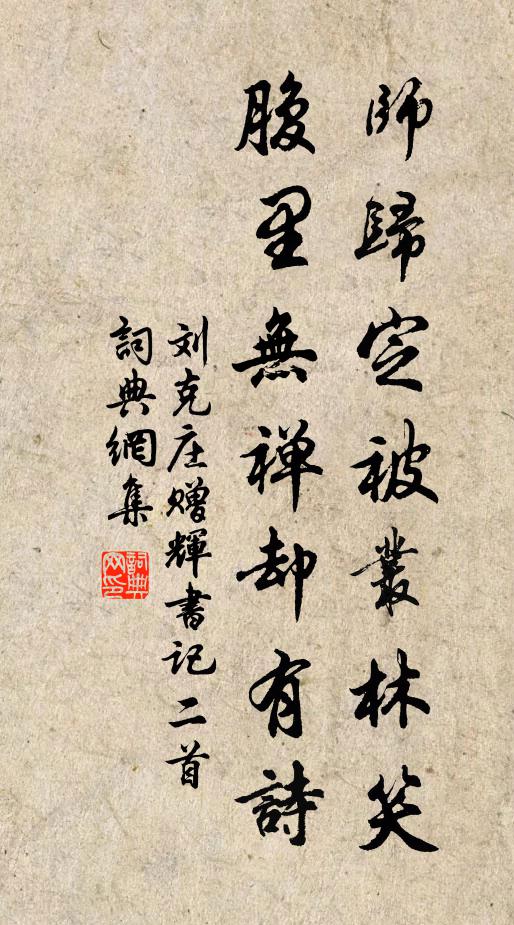 師歸定被叢林笑
腹里無禅却有詩
刘克庄赠輝書记二首
詞典網集
詞典网印